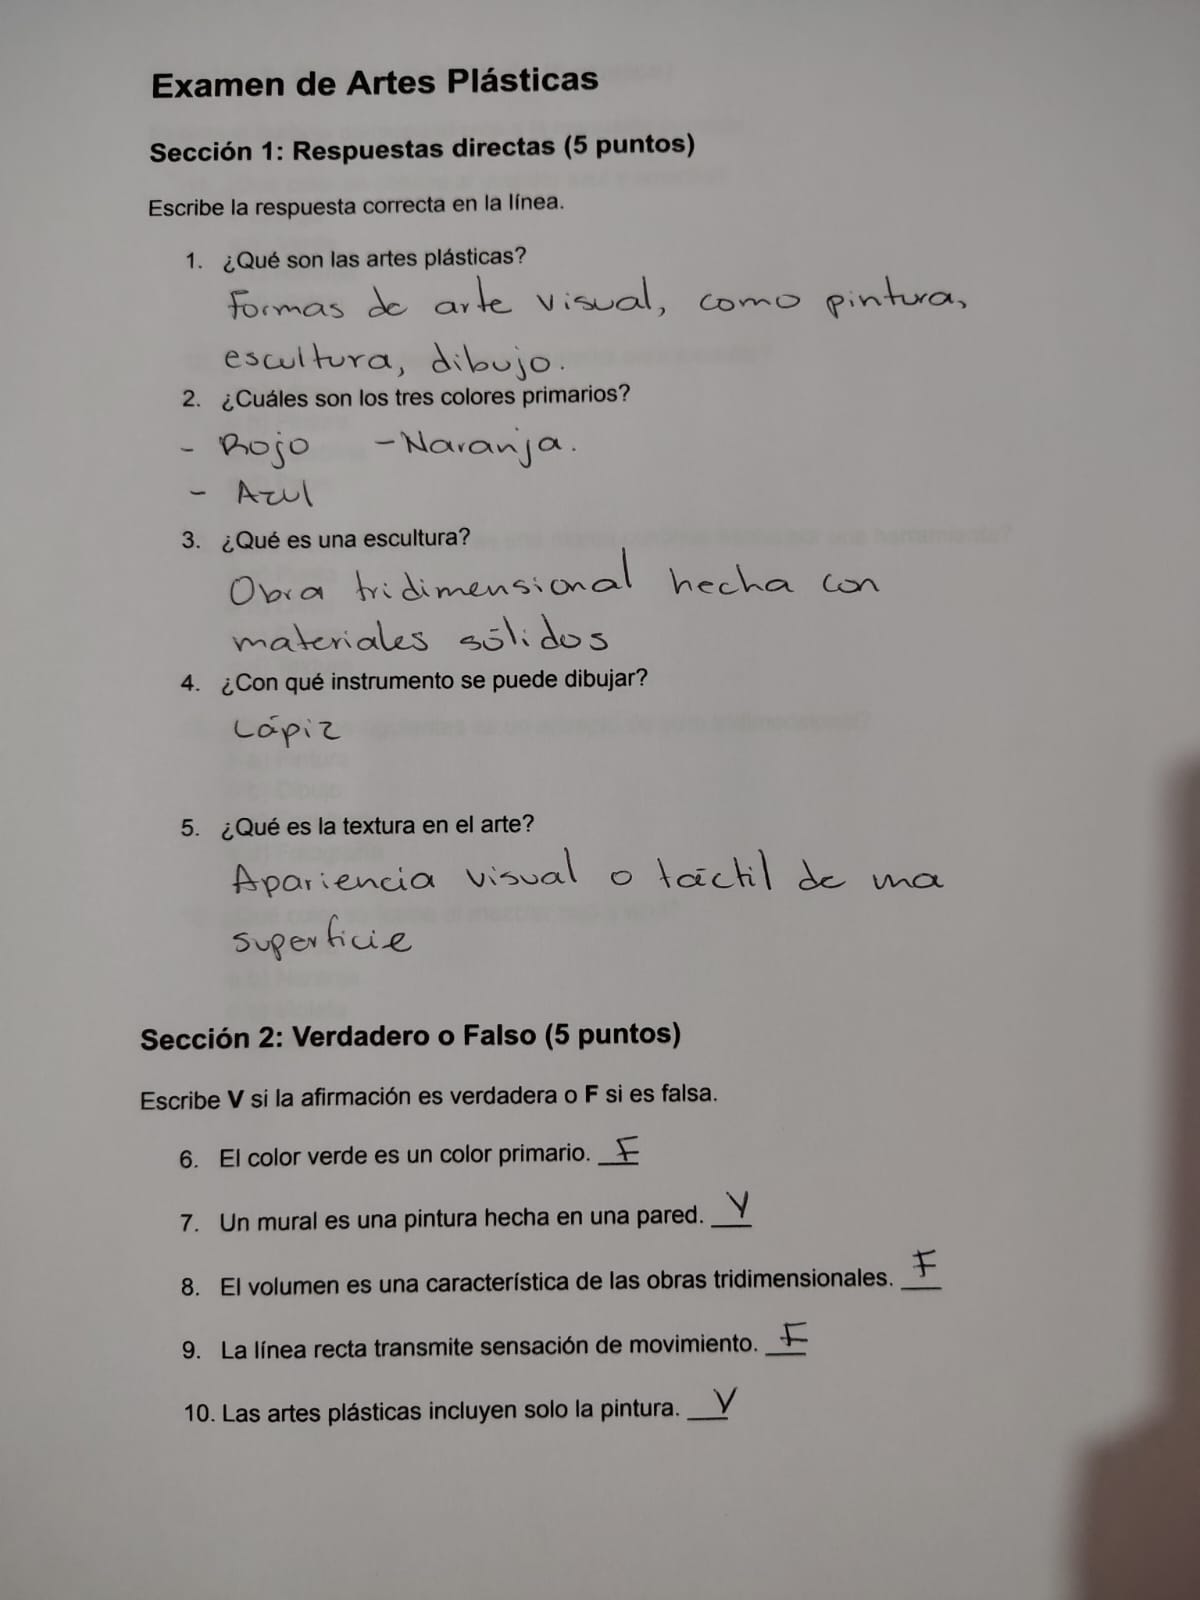 Examen de Artes Plásticas
Sección 1: Respuestas directas (5 puntos)
Escribe la respuesta correcta en la línea.
1. ¿Qué son las artes plásticas?
Formas de arte visual, como pintura,
escultura, dibujo.
2. ¿Cuáles son los tres colores primarios?
- Rojo - Naranja.
- Azul
3. ¿Qué es una escultura?
Obra tridimensional hecha con
materiales sólidos
4. ¿Con qué instrumento se puede dibujar?
Lápiz
5. ¿Qué es la textura en el arte?
Apariencia visual o táctil de una
superficie
Sección 2: Verdadero o Falso (5 puntos)
Escribe V si la afirmación es verdadera o F si es falsa.
6. El color verde es un color primario. F
7. Un mural es una pintura hecha en una pared. V
8. El volumen es una característica de las obras tridimensionales. F
9. La línea recta transmite sensación de movimiento. F
10. Las artes plásticas incluyen solo la pintura. V